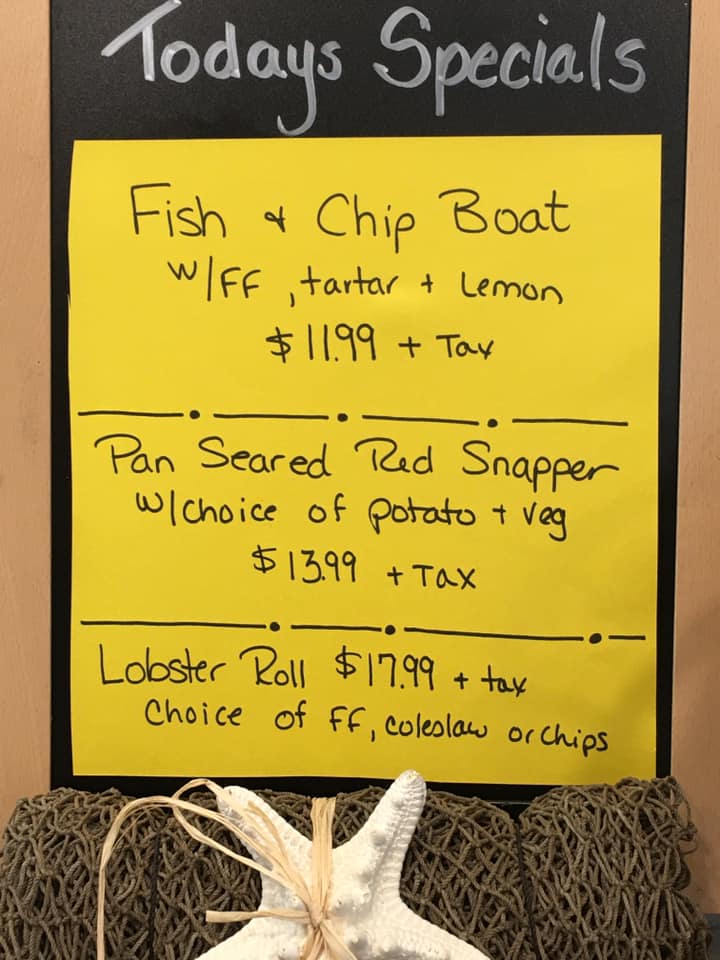 Todays Specials
Fish & Chip Boat
w/FF, tartar + Lemon
$11.99 + Tax
Pan Seared Red Snapper
w/choice of potato + veg
$13.99 + Tax
Lobster Roll $17.99 + tax
Choice of FF, coleslaw or chips